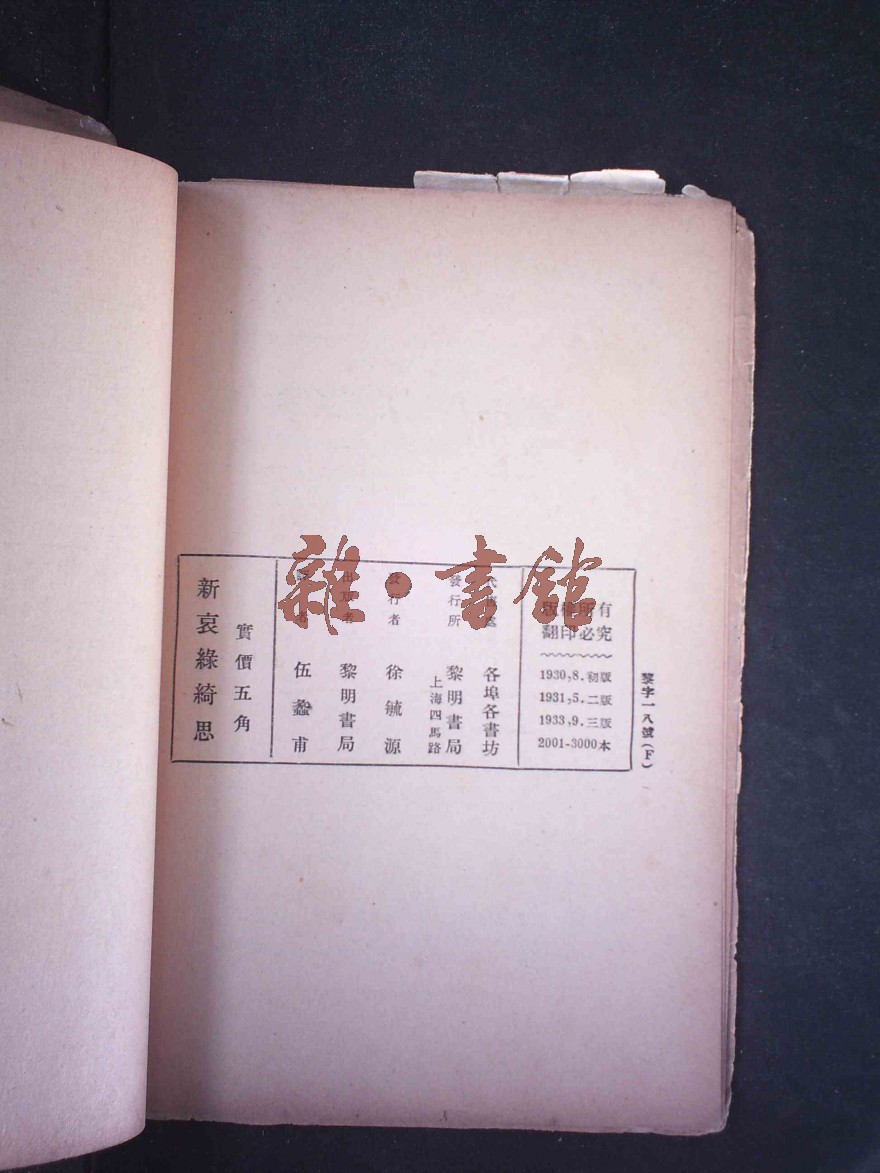 雜·書館
黎字一八號(F)
版權所有
翻印必究
1930,8.初版
1931,5.二版
1933,9.三版
2001-3000本
各埠各書坊
發行所 黎明書局
上海四馬路
發行者 徐毓源
出版者 黎明書局
者 伍蠡甫
實價五角
新哀綠綺思